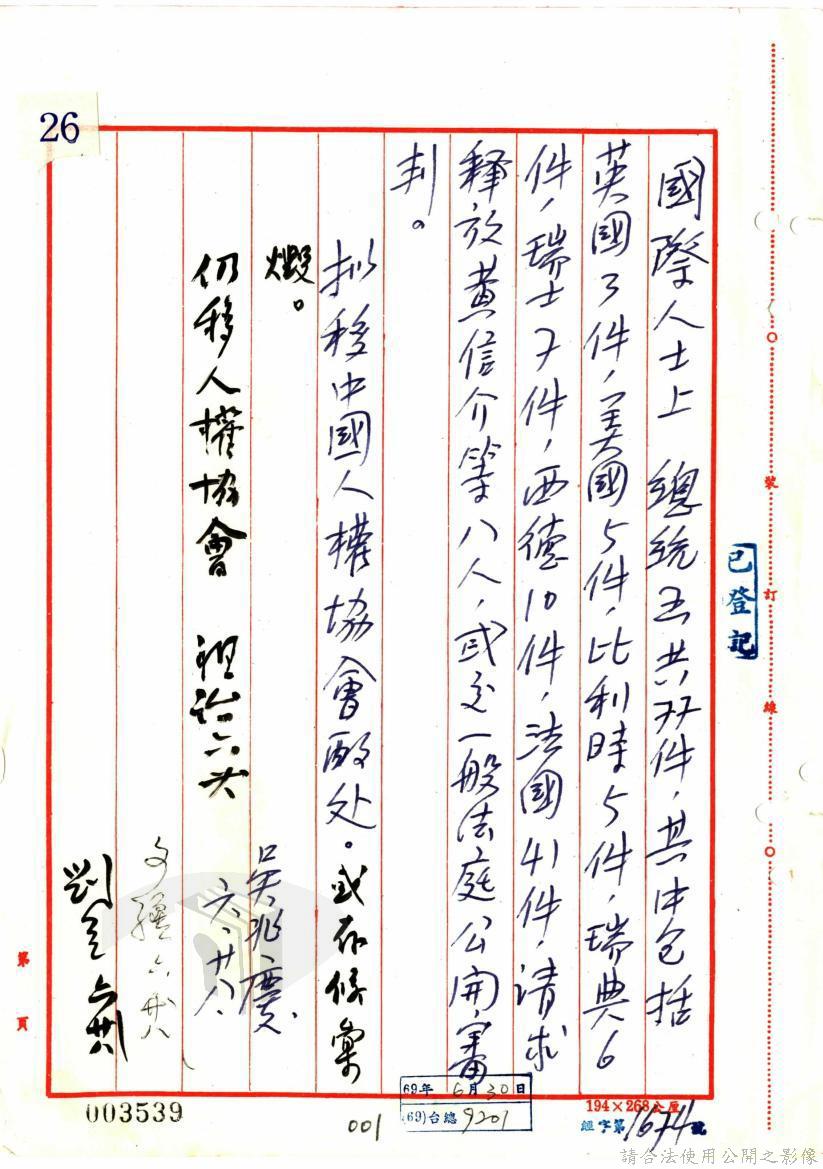 26
國際人士上 總統函共77件,其中包括
英國3件,美國5件,比利時5件,瑞典6
件,瑞士7件,西德10件,法國41件,請求
释放黄信介等八人,或交一般法庭公開審
判。
拟移中國人權協會酌处。或存候彙
燬。
吳兆慶
六、廿八、
仍移人權協會 祖詒六廿八
六廿八
劉 六廿八
已登記
裝
訂
線
第 頁
003539
001
69年6月30日
(69)台總9201
194×268公厘
經字第1674號
請合法使用公開之影像